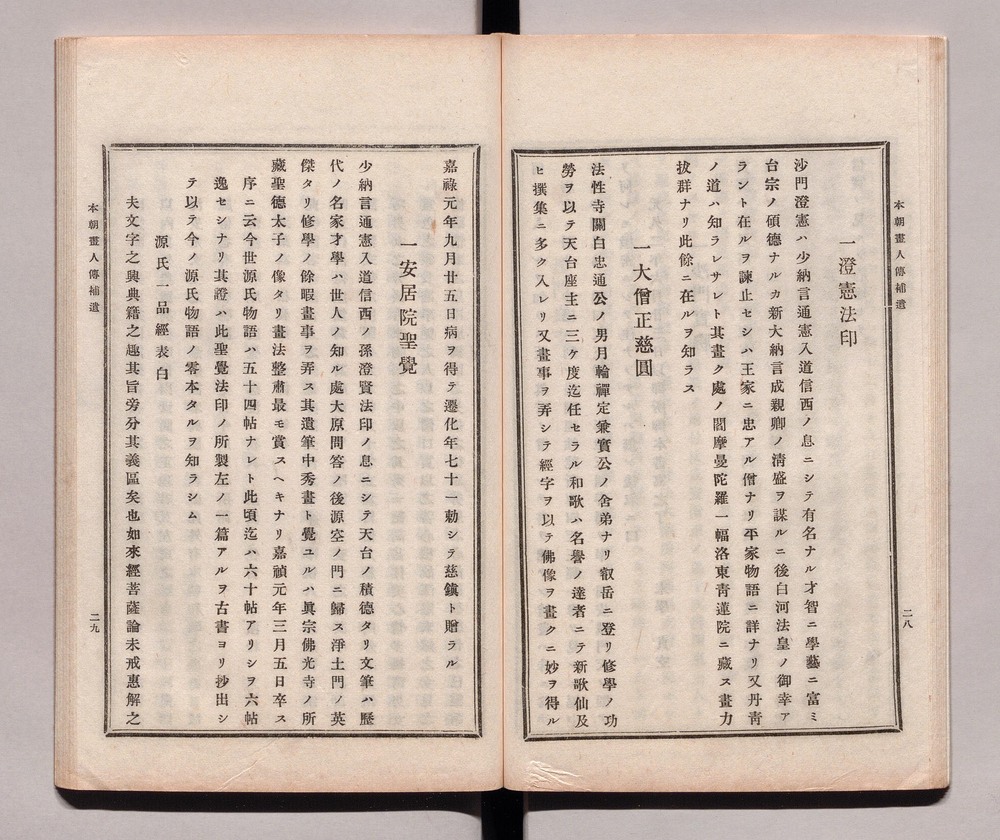 本朝畫人傳補遺
二八
一澄憲法印
沙門澄憲ハ少納言通憲入道信西ノ息ニシテ有名ナル才智ニ學藝ニ富ミ
台宗ノ碩德ナルカ新大納言成親卿ノ淸盛ヲ謀ルニ後白河法皇ノ御幸ア
ラント在ルヲ諫止セシハ王家ニ忠アル僧ナリ平家物語ニ詳ナリ又丹靑
ノ道ハ知ラレサレト其畫ク處ノ閻摩曼陀羅一幅洛東靑蓮院ニ藏ス畫力
拔群ナリ此餘ニ在ルヲ知ラス
一大僧正慈圓
法性寺關白忠通公ノ男月輪禪定兼實公ノ舍弟ナリ叡岳ニ登リ修學ノ功
勞ヲ以テ天台座主ニ三ケ度迄任セラル和歌ハ名譽ノ達者ニテ新歌仙及
ヒ撰集ニ多ク入レリ又畫事ヲ弄シテ經字ヲ以テ佛像ヲ畫クニ妙ヲ得ル
嘉祿元年九月廿五日病ヲ得テ遷化年七十一勅シテ慈鎭ト贈ラル
一安居院聖覺
少納言通憲入道信西ノ孫澄賢法印ノ息ニシテ天台ノ積德タリ文筆ハ歷
代ノ名家才學ハ世人ノ知ル處大原問答ノ後源空ノ門ニ歸ス淨土門ノ英
傑タリ修學ノ餘暇畫事ヲ弄ス其遺筆中秀畫ト覺ユルハ眞宗佛光寺ノ所
藏聖德太子ノ像タリ畫法整肅最モ賞スヘキナリ嘉禎元年三月五日卒ス
序ニ云今世源氏物語ハ五十四帖ナレト此頃迄ハ六十帖アリシヲ六帖
逸セシナリ其證ハ此聖覺法印ノ所製左ノ一篇アルヲ古書ヨリ抄出シ
テ以テ今ノ源氏物語ノ零本タルヲ知ラシム
源氏一品經表白
夫文字之興典籍之趣其旨旁分其義區矣也如來經菩薩論未戒惠解之
本朝畫人傳補遺
二九